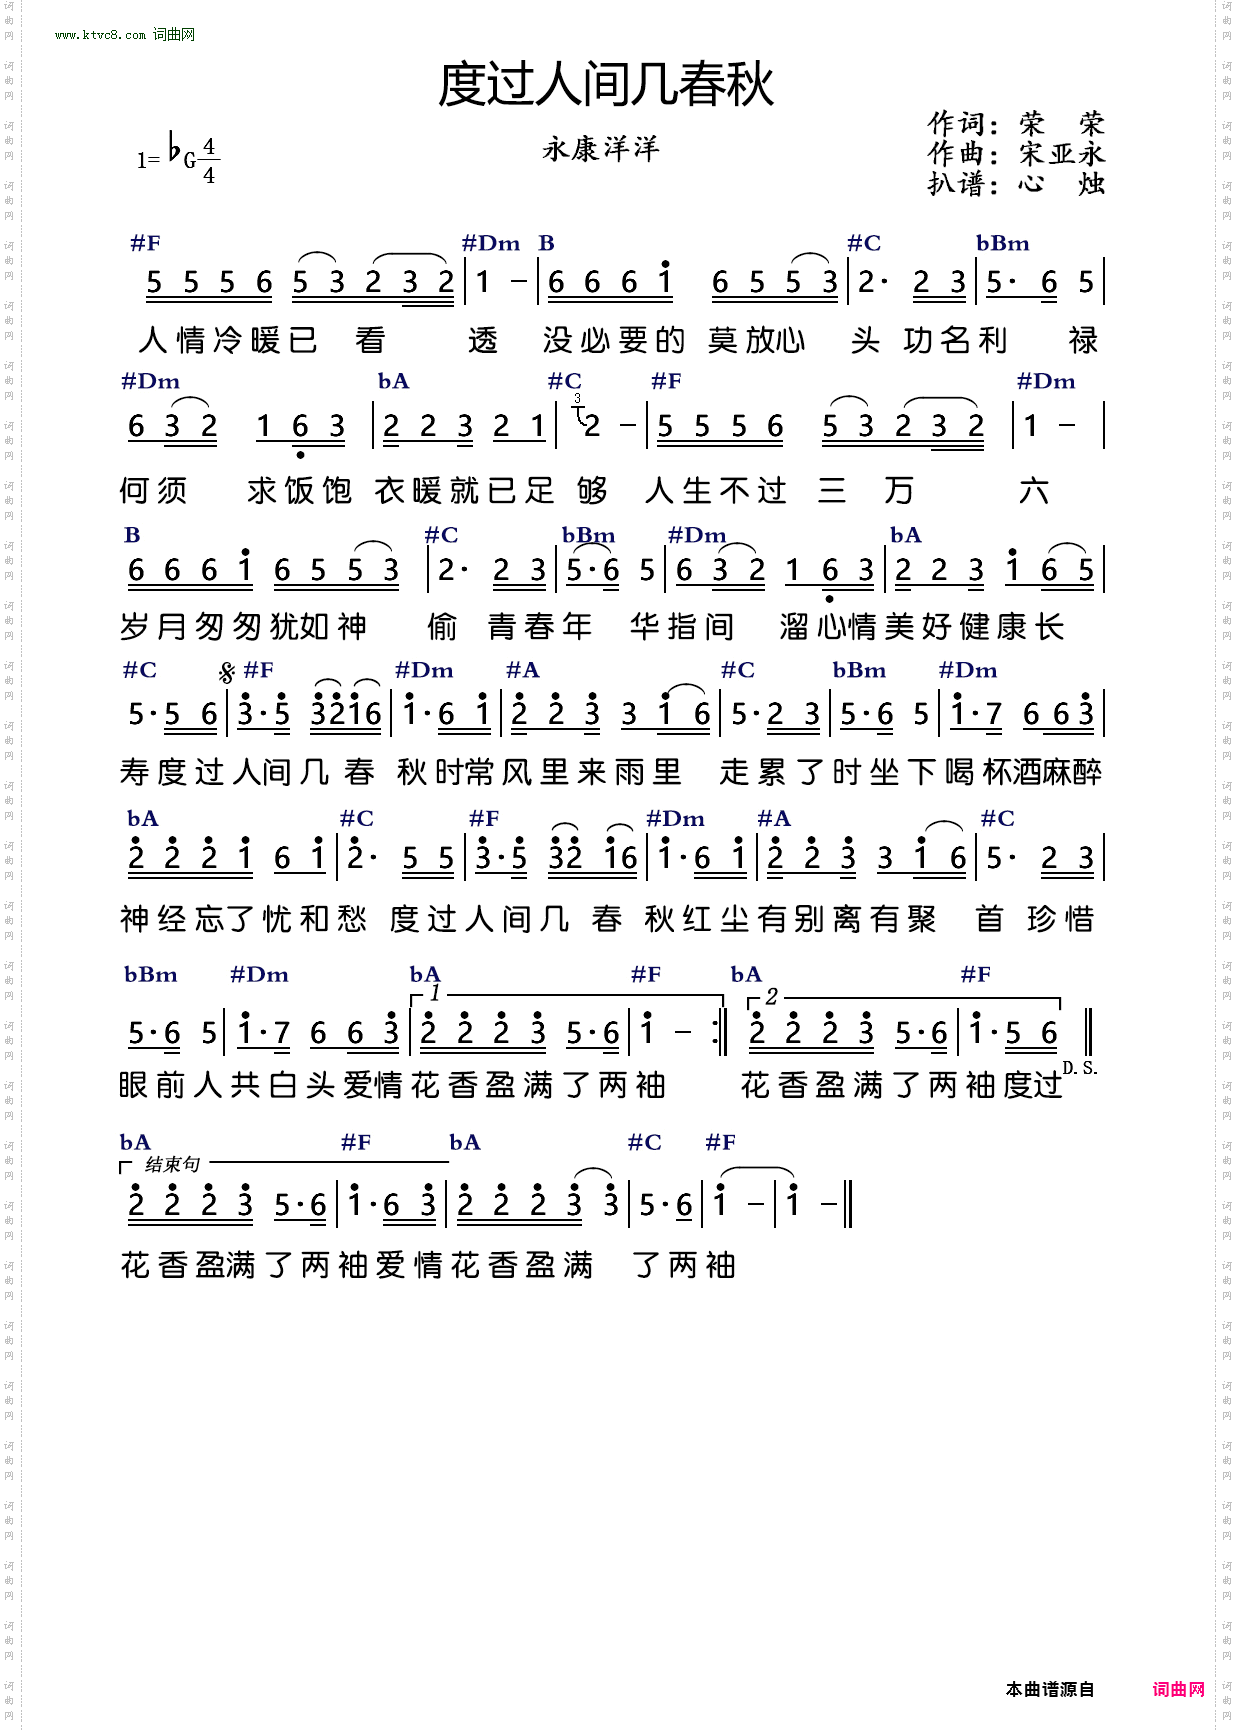 www.ktvc8.com 词曲网
度过人间几春秋
永康洋洋
作词：荣 荣
作曲：宋亚永
扒谱：心 烛
1=♭G 4/4
#F #Dm B #C bBm
5 5 5 6 5 3 2 3 2 | 1 － | 6 6 6 1 6 5 5 3 | 2· 2 3 | 5· 6 5 |
人情冷暖已 看 透 没必要的 莫放心 头 功名利 禄
#Dm bA #C #F #Dm
6 3 2 1 6 3 | 2 2 3 2 1 | 3 2 － | 5 5 5 6 5 3 2 3 2 | 1 － |
何须 求饭饱 衣暖就已足 够 人生不过 三 万 六
B #C bBm #Dm bA
6 6 6 1 6 5 5 3 | 2· 2 3 | 5·6 5 | 6 3 2 1 6 3 | 2 2 3 1 6 5
岁月匆匆犹如神 偷 青春年 华指间 溜心情美好健康长
#C #F #Dm #A #C bBm #Dm
5·5 6 | 3·5 3216 | 1·6 1 | 2 2 3 3 1 6 | 5·2 3 | 5·6 5 | 1·7 6 6 3 |
寿度过人间几春 秋时常风里来雨里 走累了时坐下喝杯酒麻醉
bA #C #F #Dm #A #C
2 2 2 1 6 1 | 2· 5 5 | 3·5 32 16 | 1·6 1 | 2 2 3 3 1 6 | 5· 2 3 |
神经忘了忧和愁 度过人间几 春 秋红尘有别离有聚 首 珍惜
bBm #Dm bA #F bA #F
1 2
5·6 5 | 1·7 6 6 3 | 2 2 2 3 5·6 | 1 － :‖ 2 2 2 3 5·6 | 1·5 6 ‖
D.S.
眼前人共白头爱情花香盈满了两袖 花香盈满了两袖度过
bA #F bA #C #F
结束句
2 2 2 3 5·6 | 1·6 3 | 2 2 2 3 3 | 5·6 | 1 － | 1 － ‖
花香盈满了两袖爱情花香盈满 了两袖
本曲谱源自 词曲网